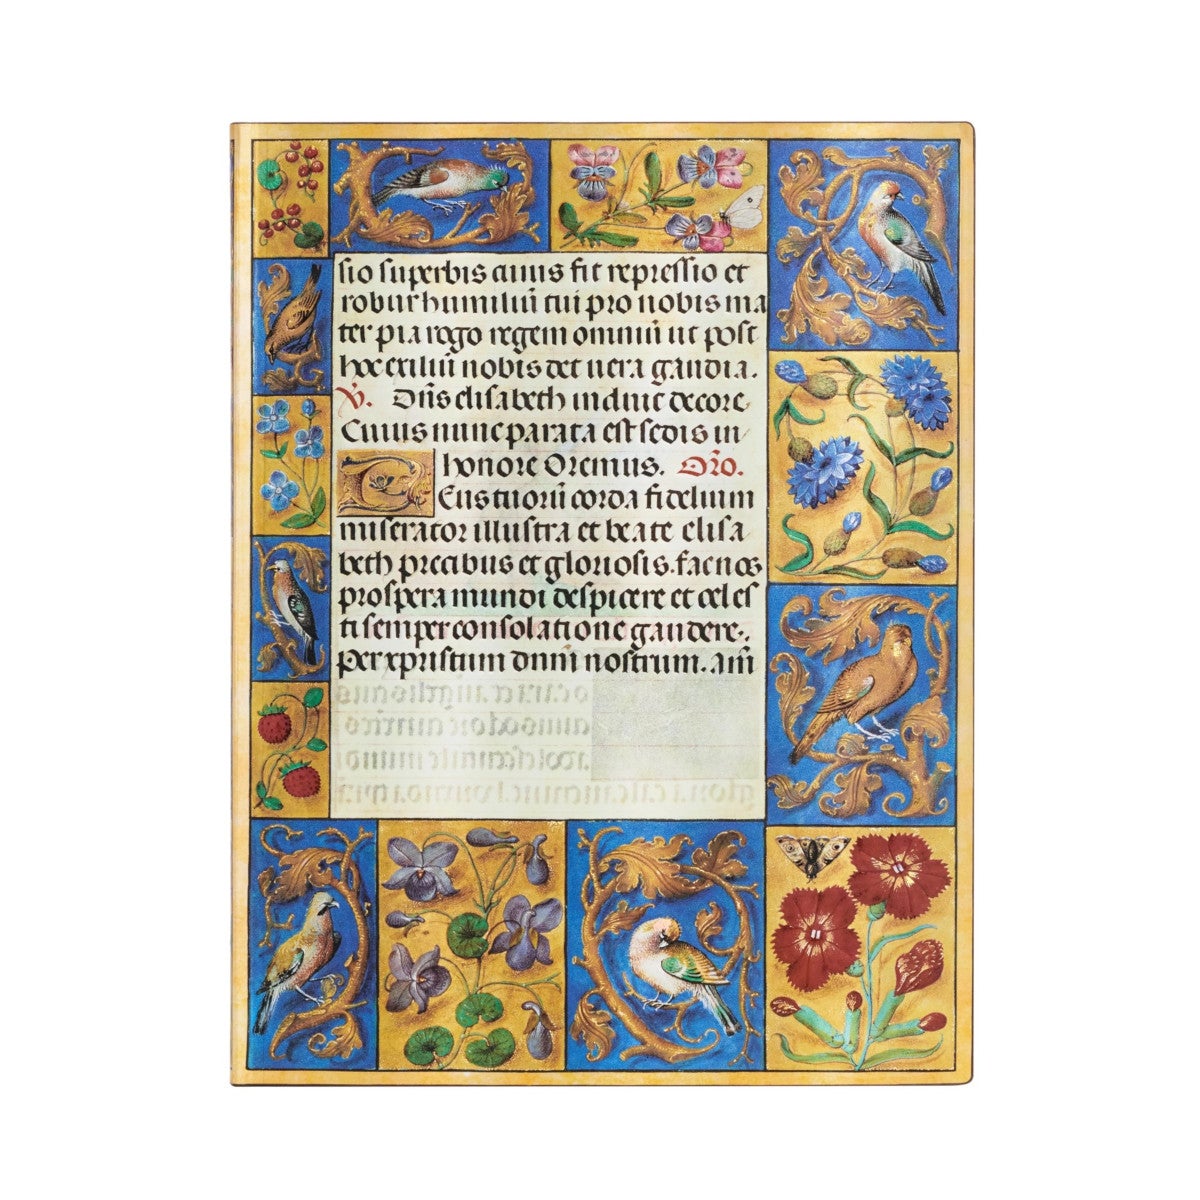 sio superbis cuius fit repressio et
robur humiliũ tui pro nobis ma
ter pia rogo regem omniũ ut post
hoc exiliũ nobis det uera gaudia.
V. Dñs elisabeth induit decore
Cuius nunc parata est sedis in
honore Oremus. Oró.
Deus tuorũ corda fidelium
miserator illustra et beate elisa
beth precibus et gloriosis. fac nos
prospera mundi despicere et celes
ti semper consolatione gaudere.
Per xpristum dnm̃ nostrum. am̃